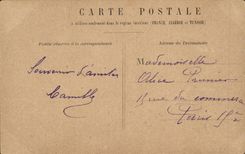 CARTE POSTALE
à utiliser seulement dans le régime intérieur (FRANCE, ALGÉRIE et TUNISIE)
Partie réservée à la correspondance
Adresse du Destinataire
Souvenir d'amitié
Camille
Mademoiselle
Alice Prunier
rue du commerce
Paris 15e